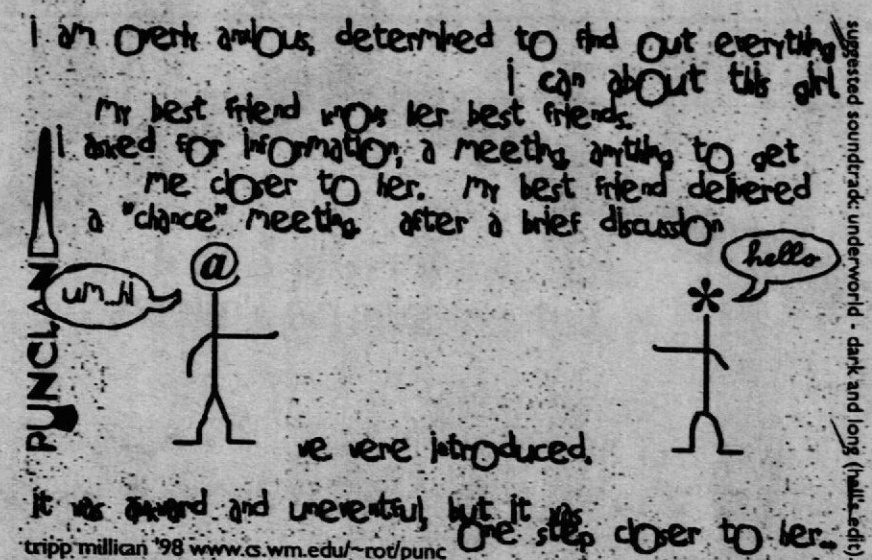 i am overly anxious, determined to find out everything
i can about this girl
my best friend knows her best friends.
i asked for information, a meeting, anything to get
me closer to her. my best friend delivered
a "chance" meeting. after a brief discussion
PUNCLAND!
um...hi
@
hello
*
we were introduced.
it was awkward and uneventful, but it was
one step closer to her...
tripp millican '98 www.cs.wm.edu/~rot/punc
suggested soundtrack: underworld - dark and long (hall's edit)